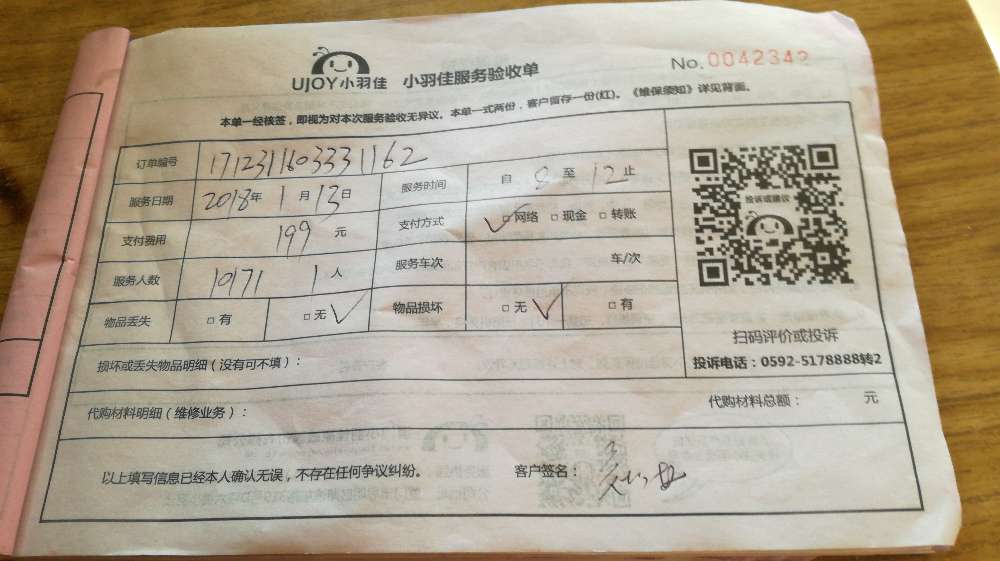 UJOY小羽佳 小羽佳服务验收单 No.0042342
本单一经核签，即视为对本次服务验收无异议。本单一式两份，客户留存一份(红)。《维保须知》详见背面。
订单编号 1712311603331162
服务日期 2018年 1月 13日 服务时间 自 8 至 12 止
支付费用 199 元 支付方式 ✓□网络 □现金 □转账
服务人数 10171 1人 服务车次 车/次
物品丢失 □有 □无✓ 物品损坏 □无✓ □有
投诉或建议
扫码评价或投诉
投诉电话：0592-5178888转2
损坏或丢失物品明细（没有可不填）：
代购材料明细（维修业务）： 代购材料总额： 元
以上填写信息已经本人确认无误，不存在任何争议纠纷。 客户签名：